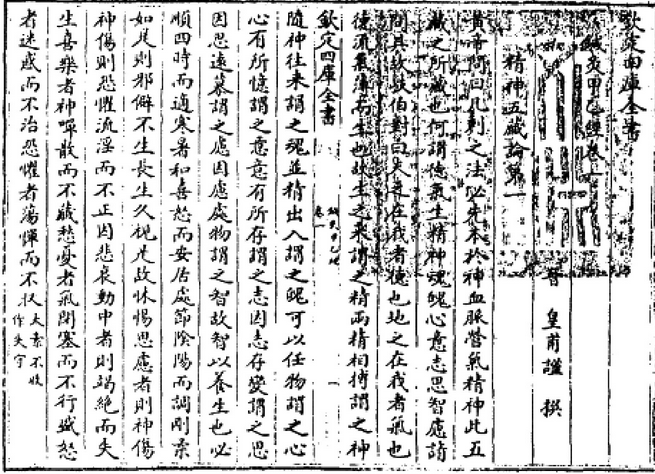 欽定四庫全書
鍼灸甲乙經卷一
晉 皇甫謐 撰
精神五臟論第一
黃帝問曰凡刺之法必先本於神血脈營氣精神此五
藏之所藏也何謂德氣生精神魂魄心意志思智慮請
問其故岐伯對曰天之在我者德也地之在我者氣也
德流氣薄而生也故生之來謂之精兩精相搏謂之神
欽定四庫全書
鍼灸甲乙經
卷一
一
隨神往來謂之魂並精出入謂之魄可以任物謂之心
心有所憶謂之意意有所存謂之志因志存變謂之思
因思遠慕謂之慮因慮處物謂之智故智以養生也必
順四時而適寒暑和喜怒而安居處節陰陽而調剛柔
如是則邪僻不生長生久視是故怵惕思慮者則神傷
神傷則恐懼流淫而不正因悲哀動中者則竭絕而失
生喜樂者神憚散而不藏愁憂者氣閉塞而不行盛怒
者迷惑而不治恐懼者蕩憚而不收太素不收
作失守